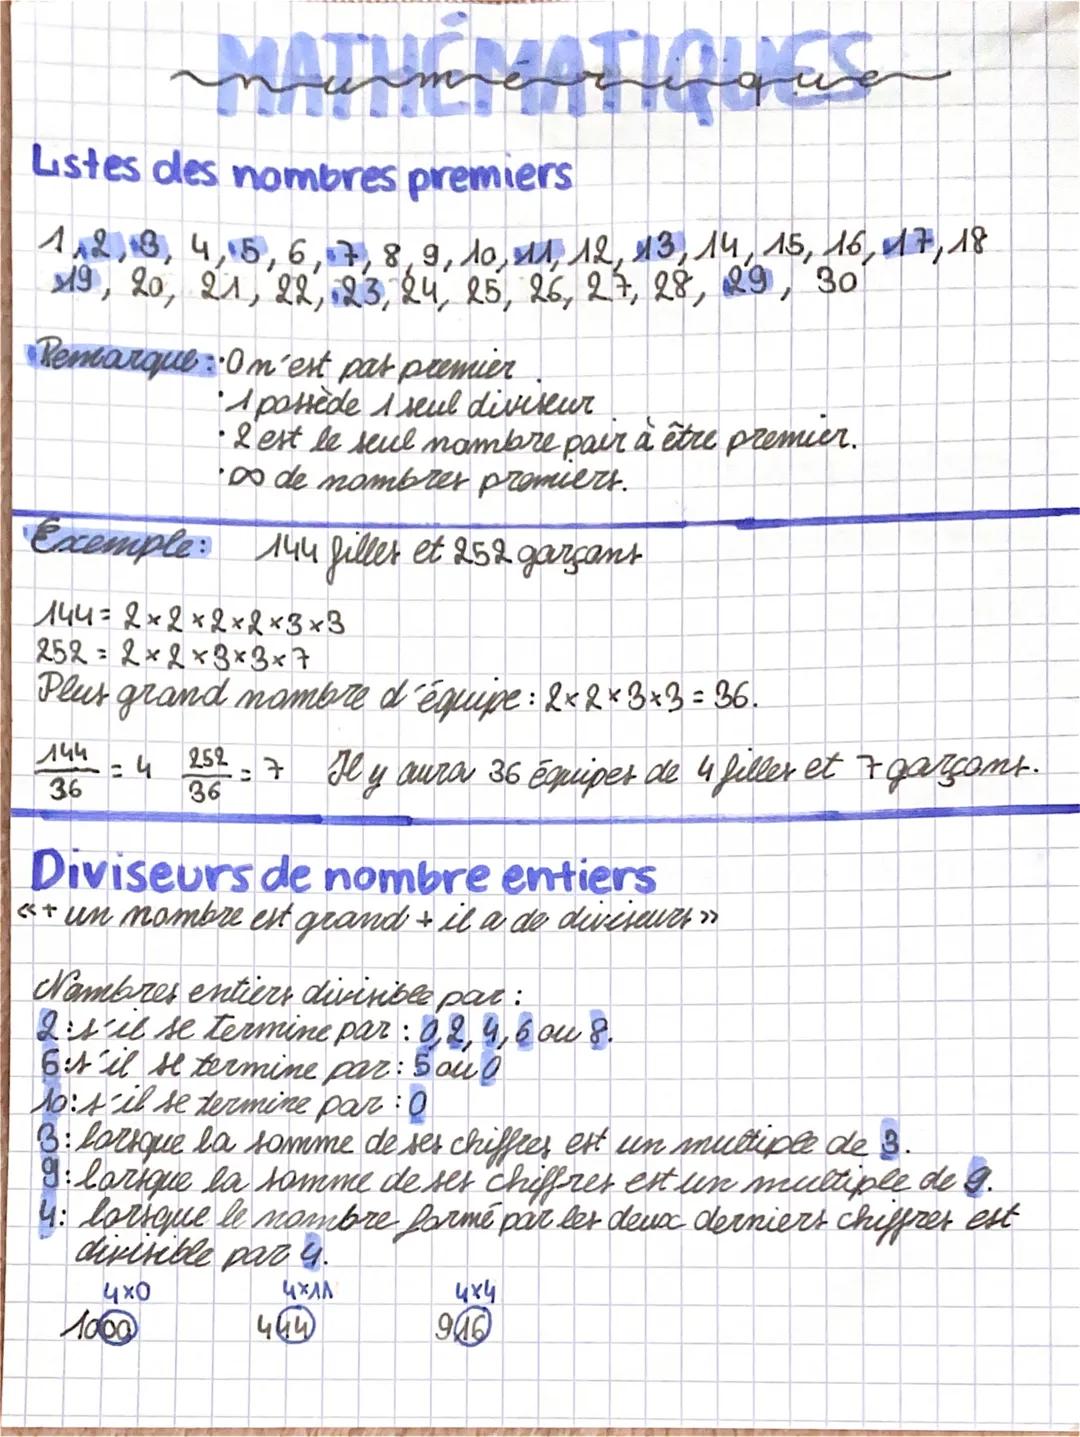 MATHÉMATIQUES
numérique
Listes des nombres premiers
1, 2, 3, 4, 5, 6, 7, 8, 9, 10, 11, 12, 13, 14, 15, 16, 17, 18
19, 20, 21, 22, 23, 24, 25, 26, 27, 28, 29, 30
Remarque : · 0 n'est pas premier.
· 1 possède 1 seul diviseur
· 2 est le seul nombre pair à être premier.
· ∞ de nombres premiers.
Exemple : 144 filles et 252 garçons
144 = 2 × 2 × 2 × 2 × 3 × 3
252 = 2 × 2 × 3 × 3 × 7
Plus grand nombre d'équipe : 2 × 2 × 3 × 3 = 36.
144/36 = 4 252/36 = 7 Il y aura 36 équipes de 4 filles et 7 garçons.
Diviseurs de nombre entiers
«+ un nombre est grand + il a de diviseurs»
Nombres entiers divisible par :
2 : s'il se termine par : 0, 2, 4, 6 ou 8.
5 : s'il se termine par : 5 ou 0
10 : s'il se termine par : 0
3 : lorsque la somme de ses chiffres est un multiple de 3.
9 : lorsque la somme de ses chiffres est un multiple de 9.
4 : lorsque le nombre formé par les deux derniers chiffres est
divisible par 4.
4×0 4×11 4×4
1000 444 916